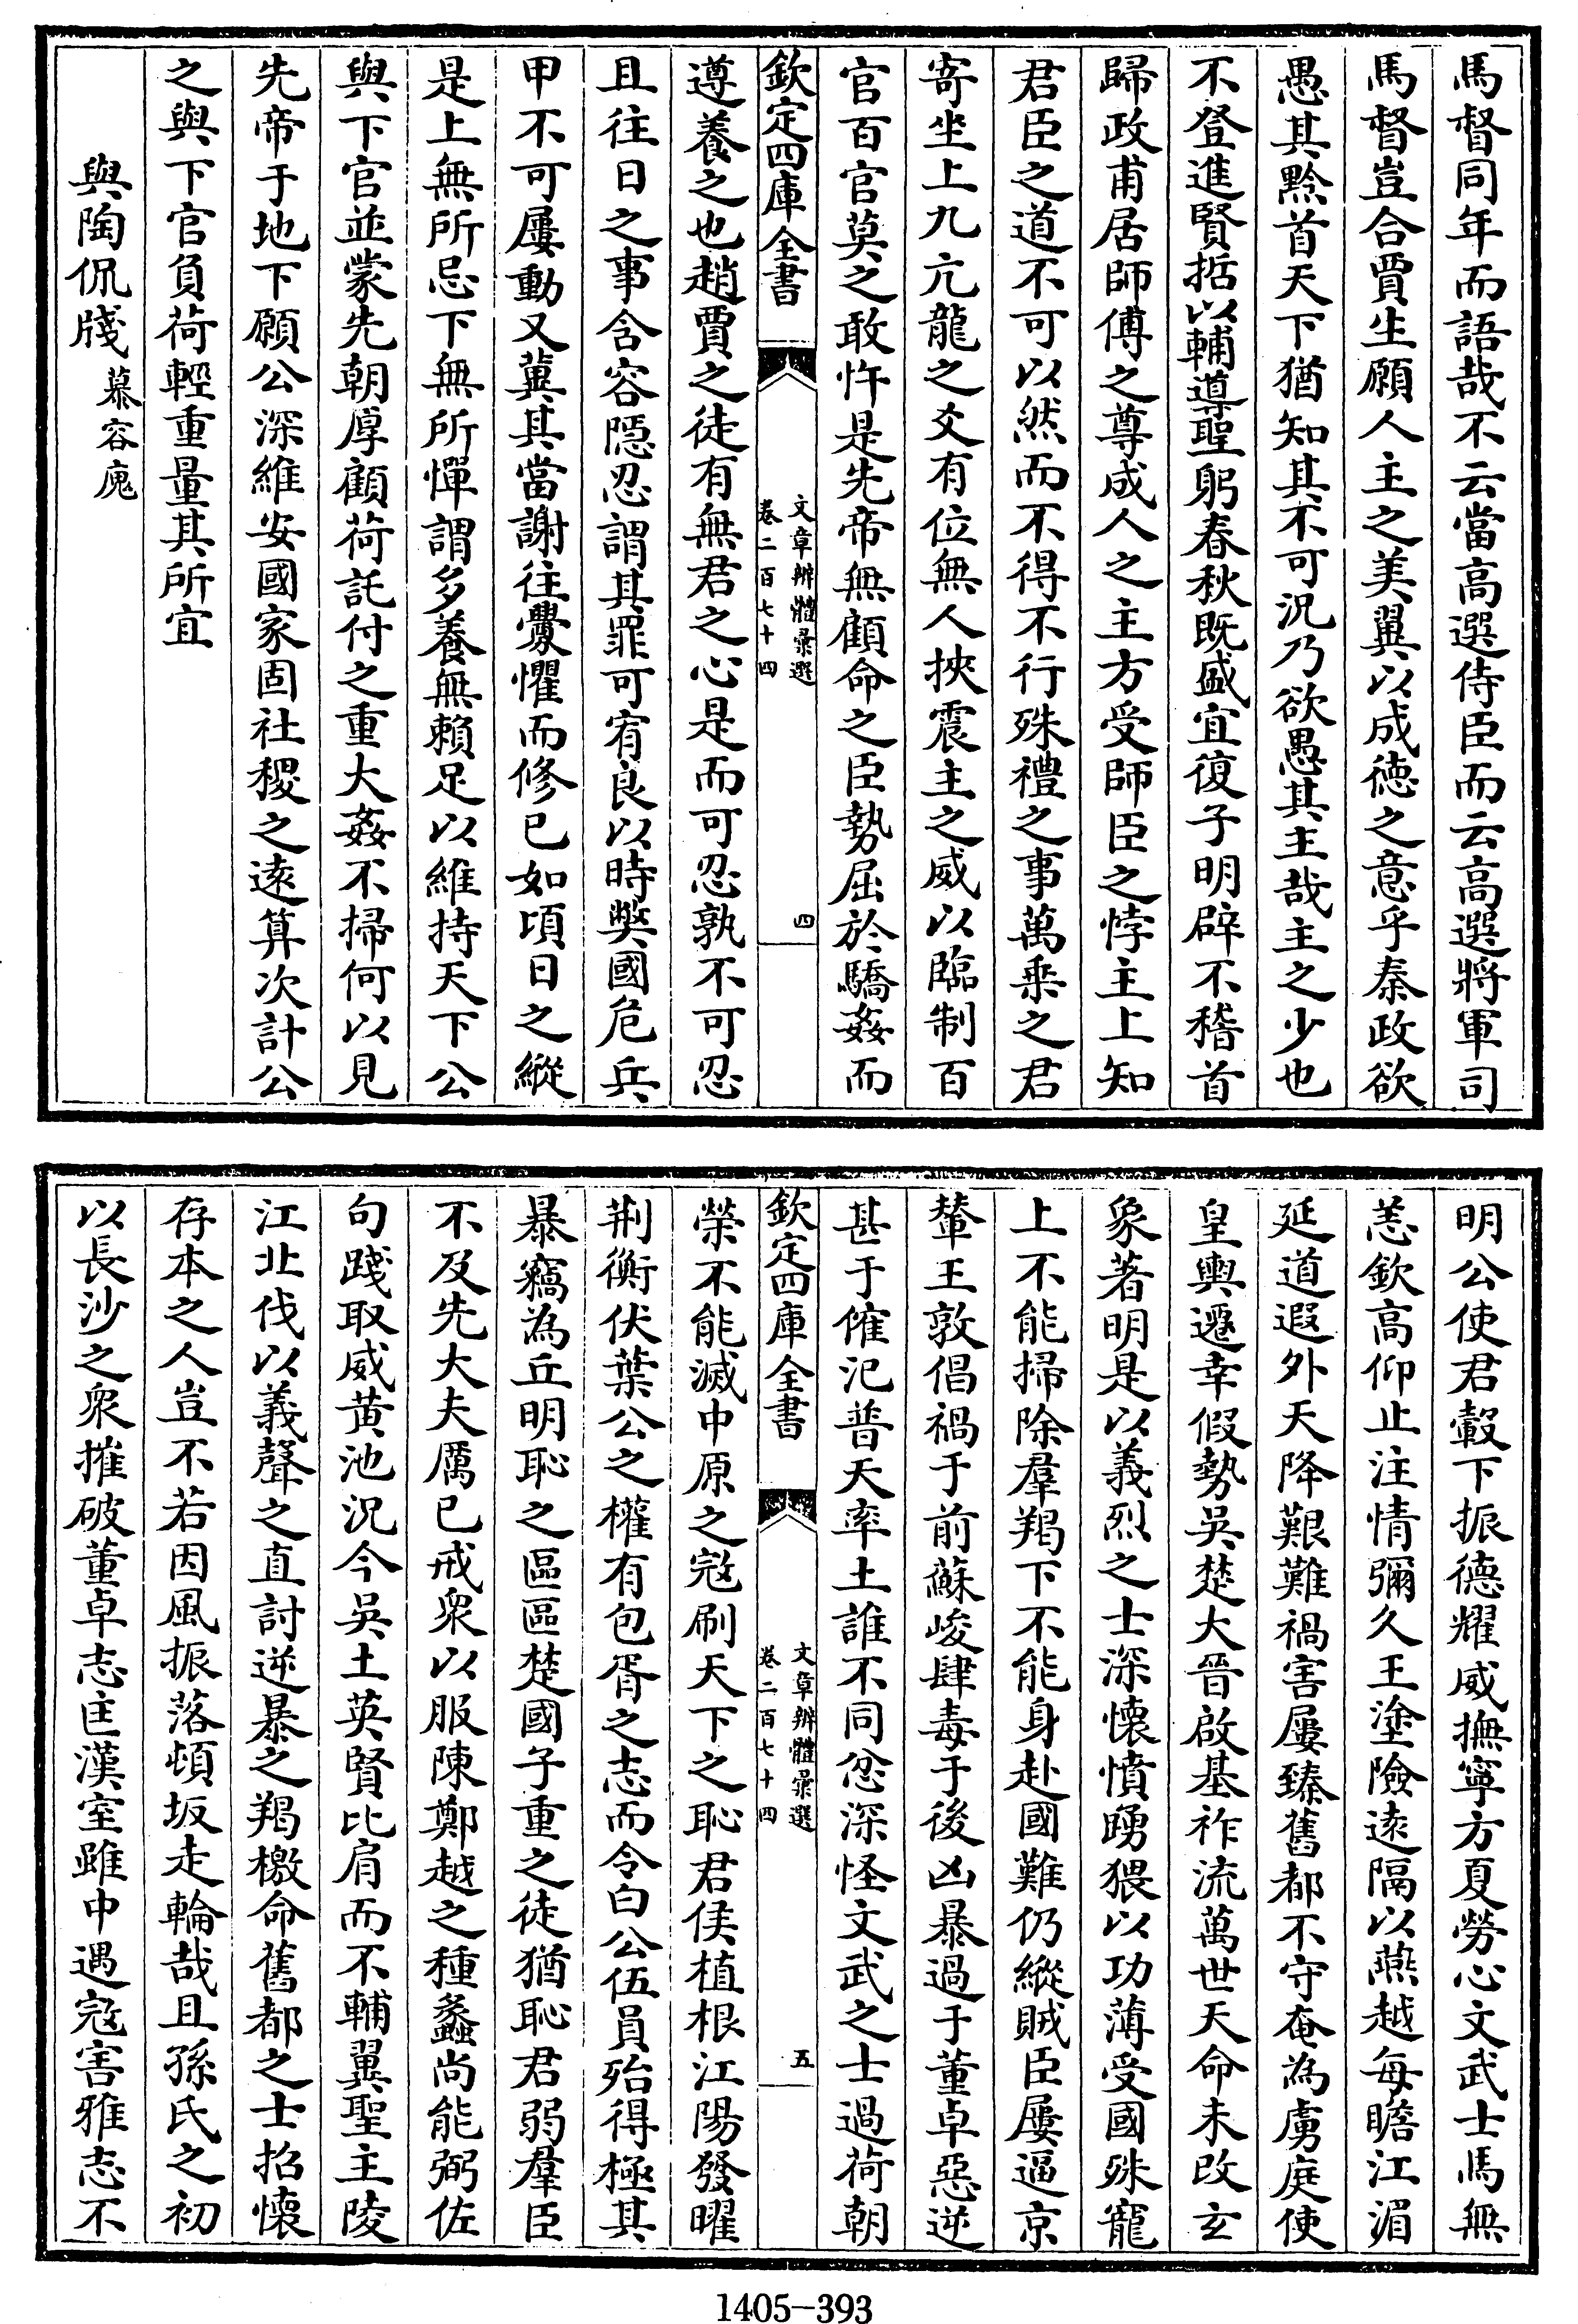 馬督同年而語哉不云當高選侍臣而云高選將軍司
馬督豈合賈生願人主之美翼以成德之意乎秦政欲
愚其黔首天下猶知其不可況乃欲愚其主哉主之少也
不登進賢括以輔導聖躬春秋既盛宜復子明辟不稽首
歸政甫居師傅之尊成人之主方受師臣之悖主上知
君臣之道不可以然而不得不行殊禮之事萬乗之君
寄坐上九亢龍之爻有位無人挾震主之威以臨制百
官百官莫之敢忤是先帝無顧命之臣勢屈於驕姦而
欽定四庫全書
文章辨體彙選
卷二百七十四
四
遵養之也趙賈之徒有無君之心是而可忍孰不可忍
且往日之事含容隠忍謂其罪可宥良以時獘國危兵
甲不可屢動又冀其當謝往釁懼而修已如頃日之縱
是上無所忌下無所憚謂多養無賴足以維持天下公
與下官並蒙先朝厚顧荷託付之重大姦不掃何以見
先帝于地下願公深維安國家固社稷之遠算次計公
之與下官負荷輕重量其所宜
與陶侃牋
慕容廆
明公使君轂下振德耀威撫寧方夏勞心文武士馬無
恙欽高仰止注情彌久王塗險遠隔以燕越每瞻江湄
延道遐外天降艱難禍害屢臻舊都不守奄為虜庭使
皇輿遷幸假勢吳楚大晉啟基祚流萬世天命未改玄
象著明是以義烈之士深懷憤踴猥以功薄受國殊寵
上不能掃除羣羯下不能身赴國難仍縱賊臣屢逼京
輦王敦倡禍于前蘇峻肆毒于後凶暴過于董卓惡逆
甚于傕汜普天率土誰不同忿深怪文武之士過荷朝
欽定四庫全書
文章辨體彙選
卷二百七十四
五
榮不能滅中原之寇刷天下之恥君侯植根江陽發曜
荆衡伏葉公之權有包胥之志而令白公伍員殆得極其
暴竊為丘明恥之區區楚國子重之徒猶恥君弱羣臣
不及先大夫厲已戒衆以服陳鄭越之種蠡尚能弼佐
句踐取威黄池況今吳土英賢比肩而不輔翼聖主陵
江北伐以義聲之直討逆暴之羯檄命舊都之士招懷
存本之人豈不若因風振落頓坂走輪哉且孫氏之初
以長沙之衆摧破董卓志匡漢室雖中遇寇害雅志不
1405-393